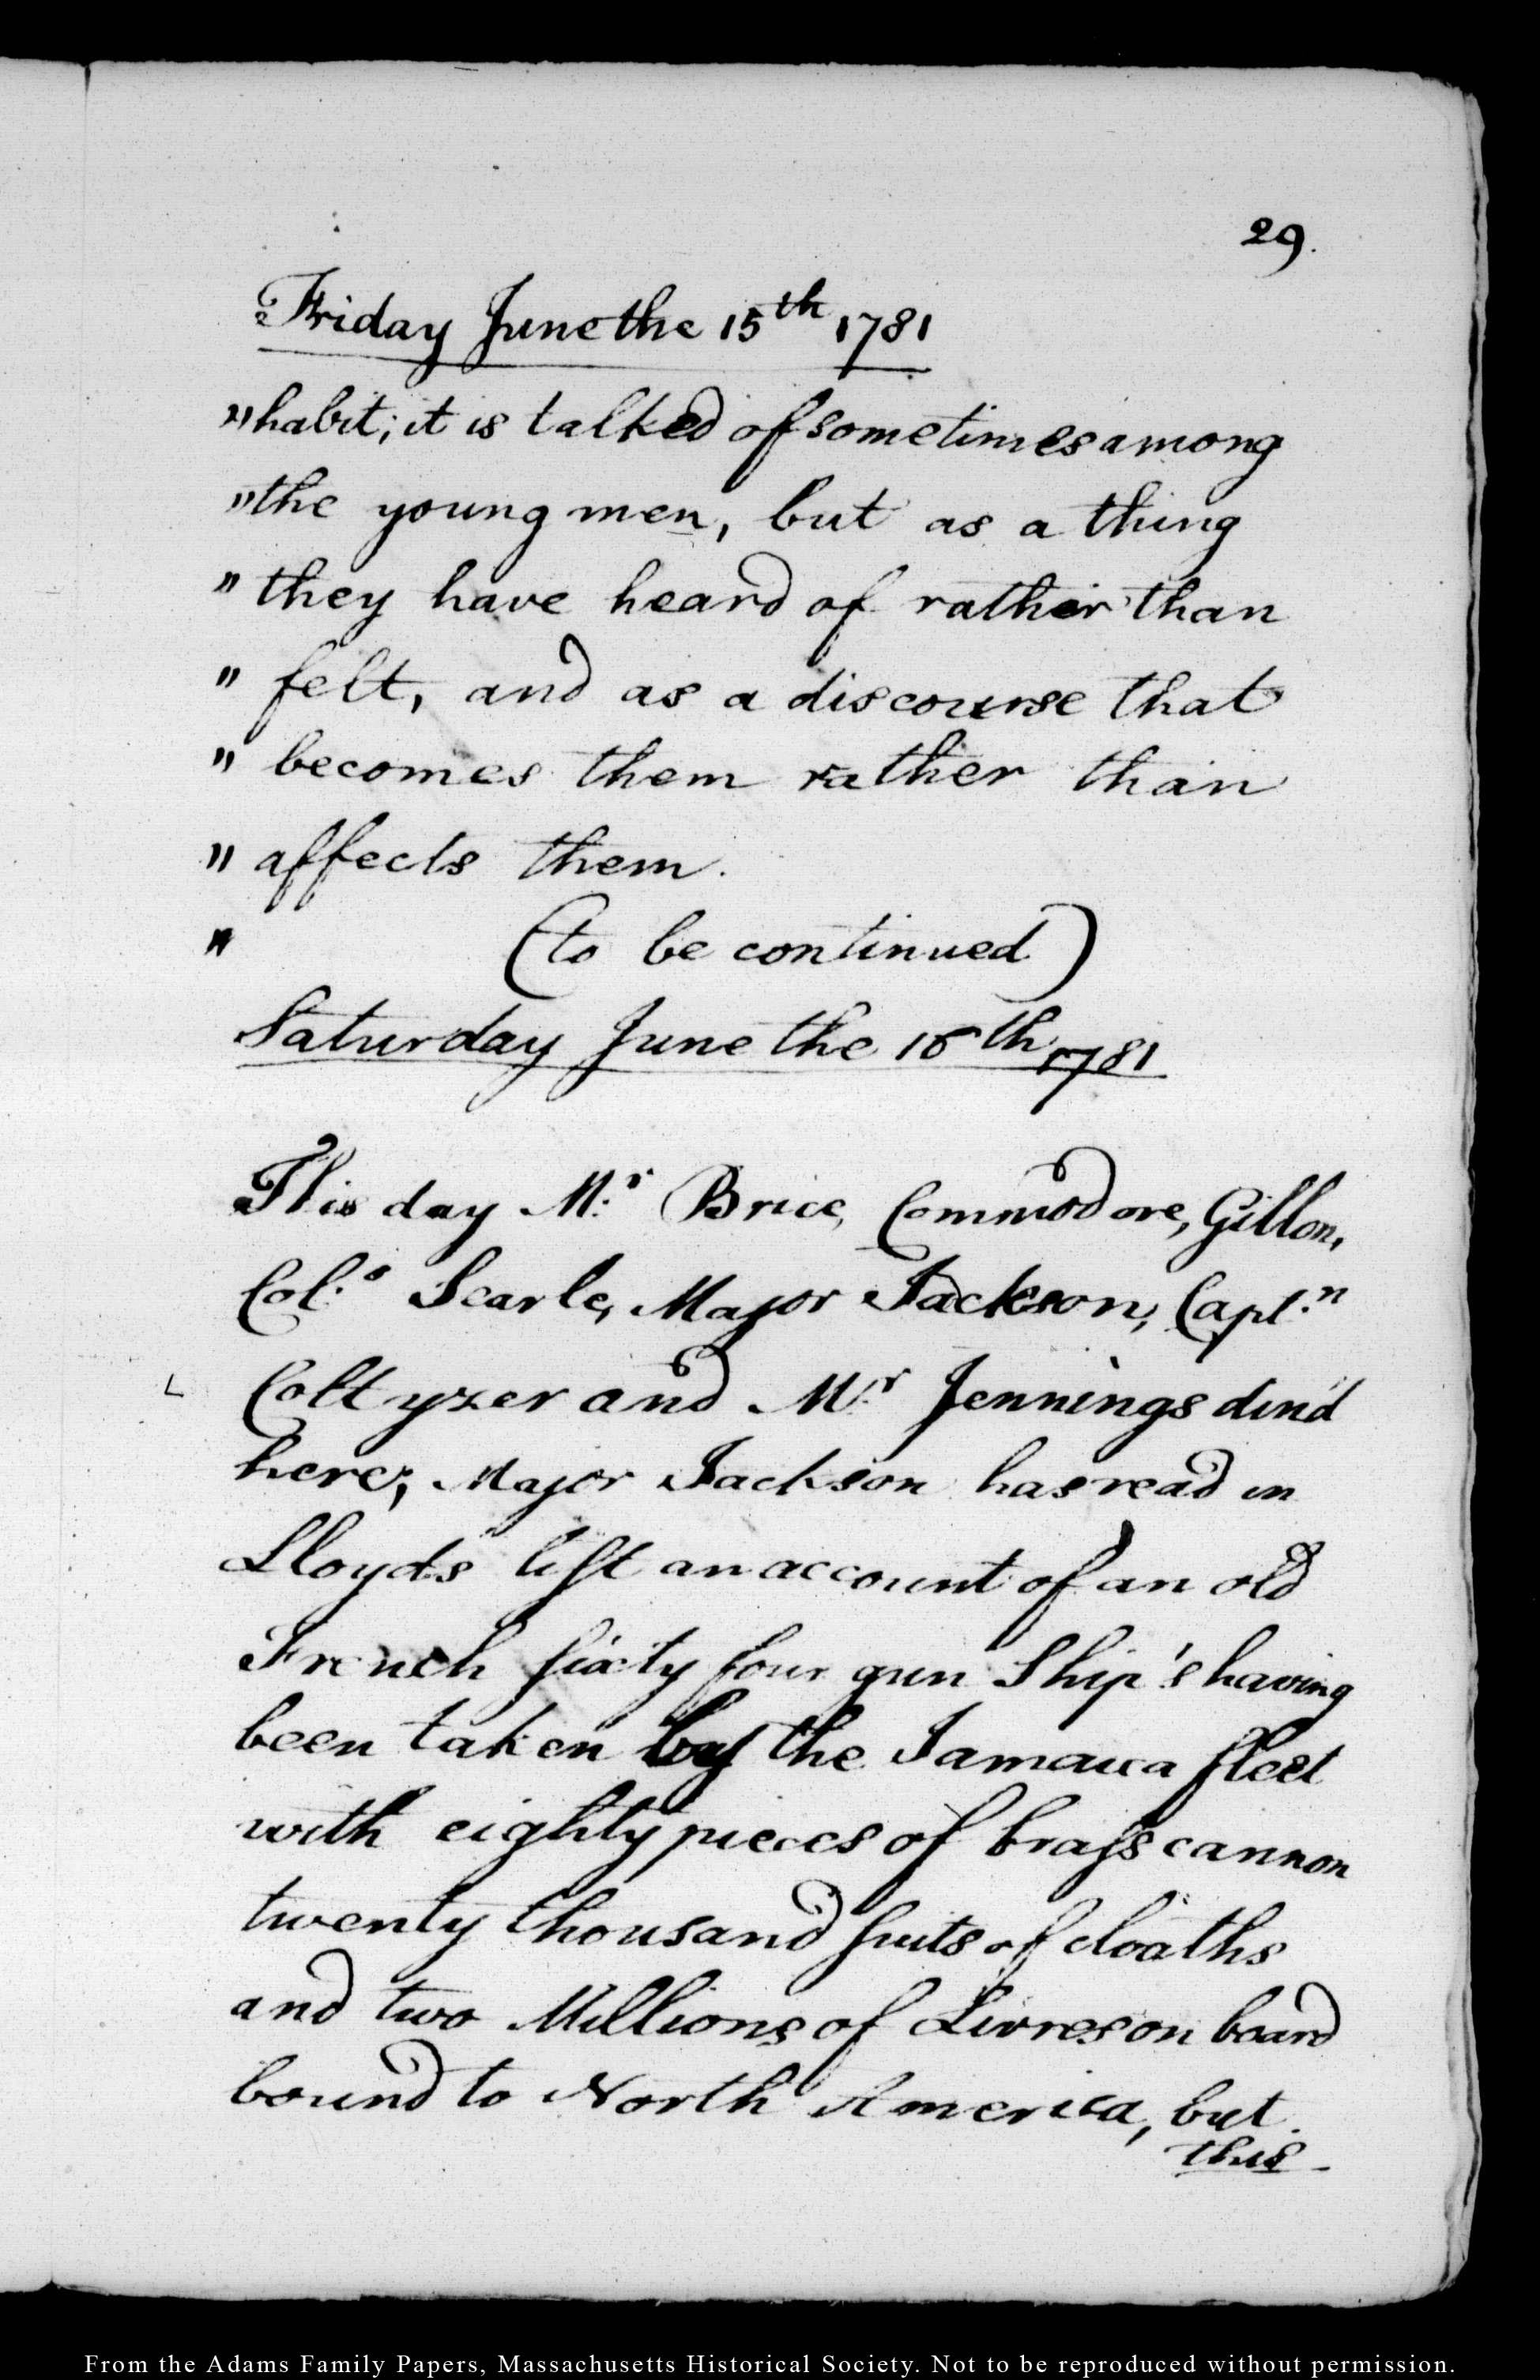 29.
Friday June the 15th 1781
"habit; it is talked of sometimes among
"the young men, but as a thing
" they have heard of rather than
" felt, and as a discourse that
" becomes them rather than
" affects them.
" (to be continued)
Saturday June the 16th 1781
This day Mr. Brice, Commodore, Gillon,
Col.o Searle, Major Jackson, Capt.n
Coltyzer and Mr. Jennings din'd
here; Major Jackson has read in
Lloyds liſt an account of an old
French ſixty four gun Ship's having
been taken by the Jamaica fleet
with eighty pieces of braſs cannon
twenty thousand ſuits of cloaths
and two Millions of Livres on board
bound to North America, but
this
From the Adams Family Papers, Massachusetts Historical Society. Not to be reproduced without permission.